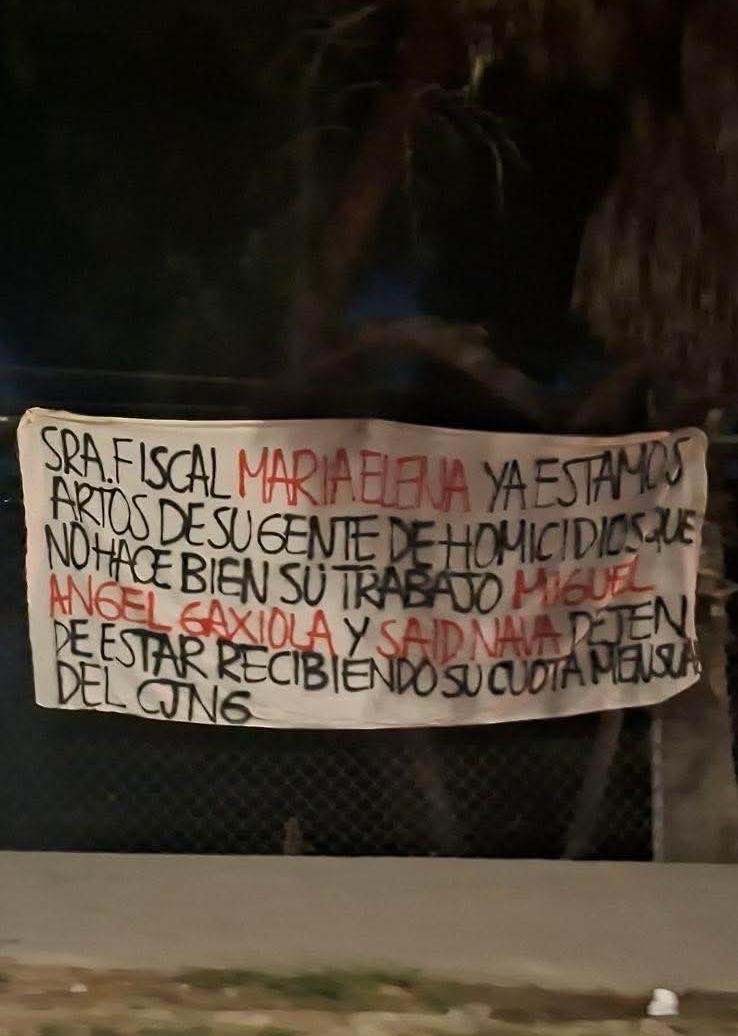 SRA. FISCAL MARIA ELENA YA ESTAMOS
ARTOS DE SU GENTE DE HOMICIDIOS QUE
NO HACE BIEN SU TRABAJO MIGUEL
ANGEL GAXIOLA Y SAID NAVA DEJEN
DE ESTAR RECIBIENDO SU CUOTA MENSUAL
DEL CJNG